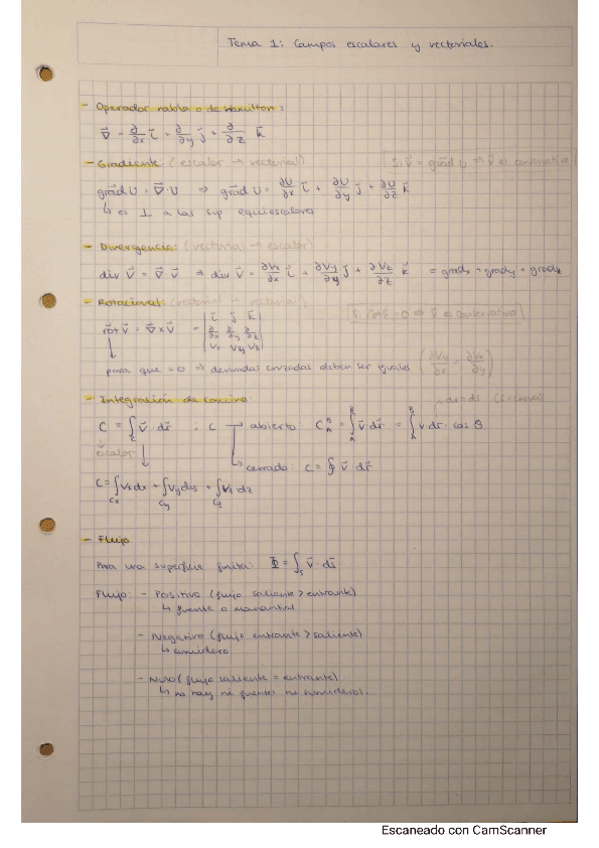 Tema 1: Campos escalares y vectoriales.
- Operador nabla o de Hamilton:
∇⃗ = ∂/∂x i⃗ + ∂/∂y j⃗ + ∂/∂z k⃗
- Gradiente: (escalar → vectorial)
Si V⃗ = grad U ⇒ V⃗ es conservativo
grad U = ∇⃗ · U ⇒ grad U = ∂U/∂x i⃗ + ∂U/∂y j⃗ + ∂U/∂z k⃗
↳ es ⊥ a las sup equiescalares
- Divergencia: (vectorial → escalar)
div V⃗ = ∇⃗ · V⃗ ⇒ div V⃗ = ∂Vx/∂x i⃗ + ∂Vy/∂y j⃗ + ∂Vz/∂z k⃗ = gradx + grady + gradz
- Rotacional: (vectorial → vectorial)
rot V⃗ = ∇⃗ × V⃗ = | i⃗ j⃗ k⃗ |
| ∂/∂x ∂/∂y ∂/∂z |
| Vx Vy Vz |
Si rot V⃗ = 0 ⇒ V⃗ es conservativo
para que = 0 ⇒ derivadas cruzadas deben ser iguales (∂Vy/∂x = ∂Vx/∂y)
- Integración de camino:
dr = ds
C = ∫c V⃗ · dr⃗ ; C → abierto: C_A^B = ∫_A^B V⃗ · dr⃗ = ∫_A^B v dr · cos θ
escalar
↳ cerrado: C = ∮ V⃗ dr⃗
C = ∫Cx Vx dx + ∫Cy Vy dy + ∫Cz Vz dz
- Flujo
Para una superficie finita: Φ = ∫s V⃗ · ds⃗
Flujo: - Positivo (flujo saliente > entrante)
↳ fuente o manantial
- Negativo (flujo entrante > saliente)
↳ sumidero
- Nulo (flujo saliente = entrante)
↳ no hay ni fuentes ni sumideros.
Escaneado con CamScanner